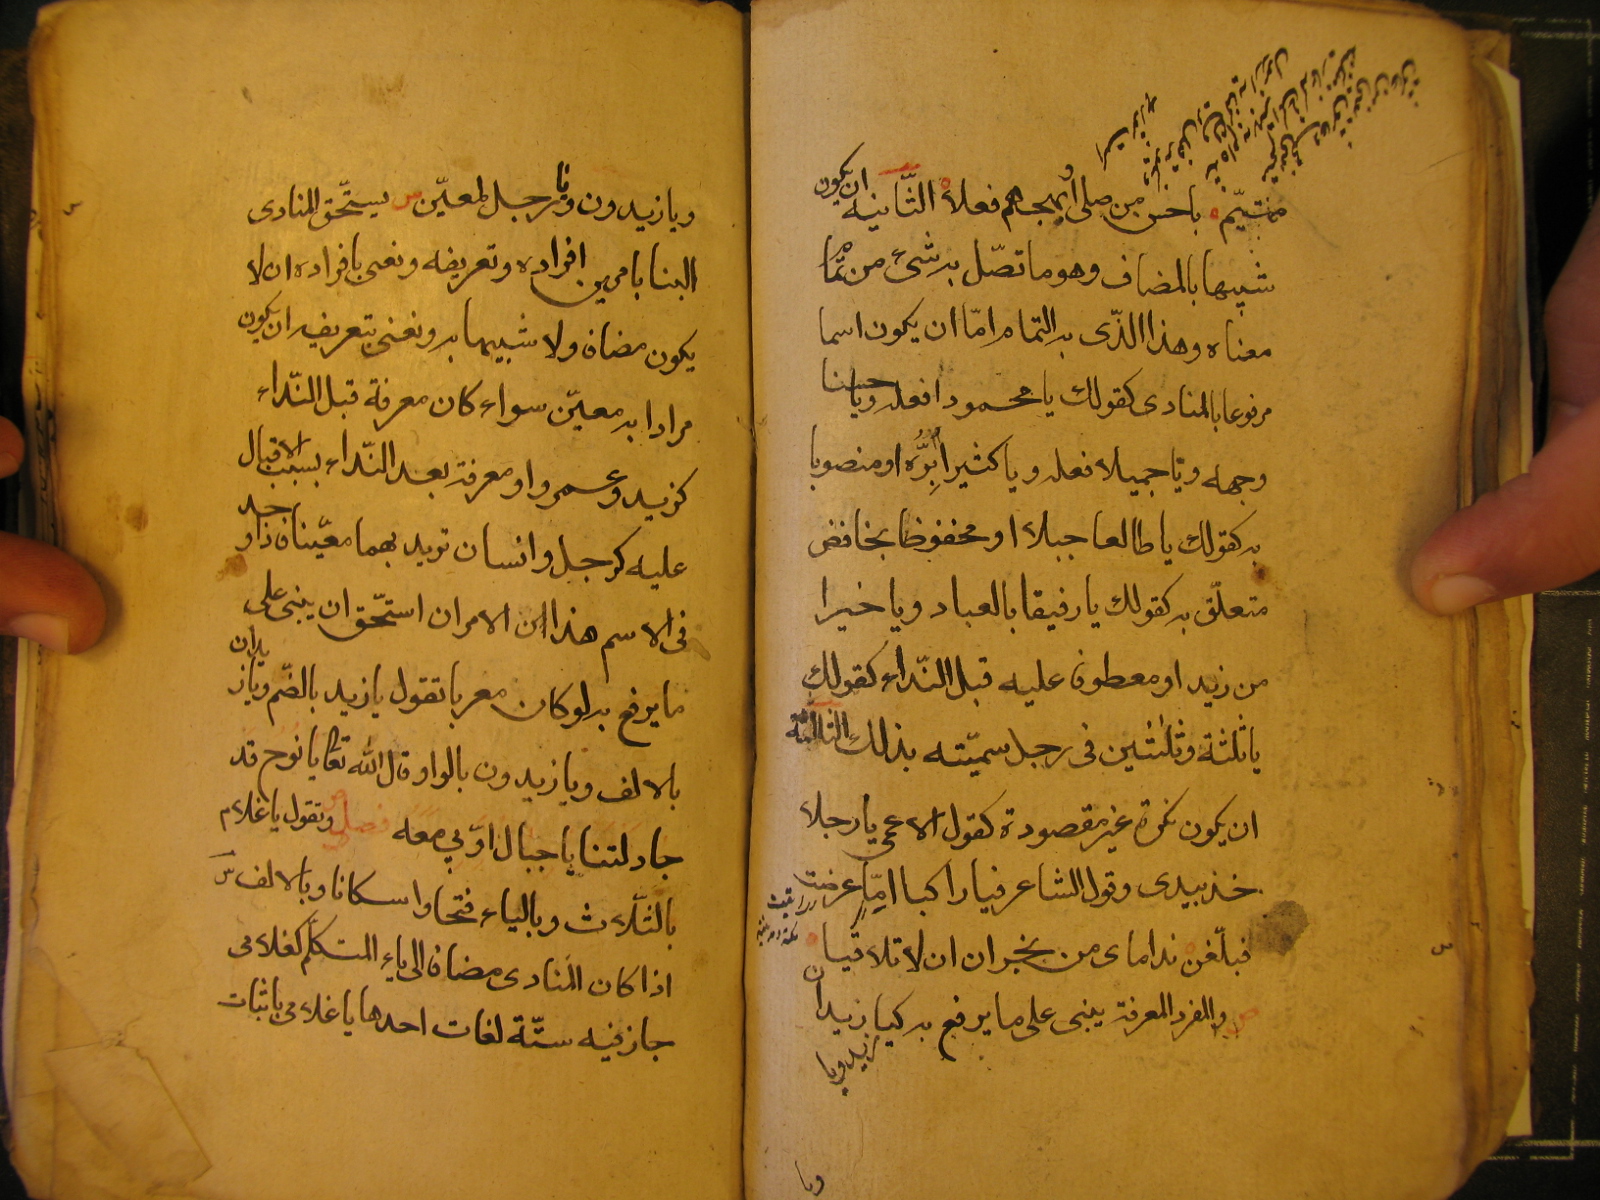 متيّم باحسن من صلى وأبهجهم فعلا الثّانية ان يكون
شبيها بالمضاف وهو ما تصّل به شئ من تمام
معناه وهذا الذّى به التمام امّا ان يكون اسما
مرفوعا بالمنادى كقولك يا محمودا فعله ويا حسنا
وجهه ويا جميلا فعله ويا كثيرا برّه او منصوبا
به كقولك يا طالعا جبلا او مخفوظا بخافض
متعلّق به كقولك يا رفيقا بالعباد ويا خيرا
من زيد او معطوف عليه قبل النّداء كقولك
يا ثلثة وثلثين فى رجل سميّته بذلك الثالثة
ان يكون نكرة غير مقصودة كقول الاعمى يا رجلا
خذ بيدى وقول الشاعر فيا راكبا امّا عرضت
فبلّغن نداماى من نجران ان لا تلاقيا
ص والمفرد المعرفة يبنى على ما يرفع به كيا زيدان
زيد ويا
ويا
ويا زيدون ويا رجل لمعيّن س يستحّق المنادى
البنا بامرين افراده وتعريفه ونعنى بافراده ان لا
يكون مضاف ولا شبيها به ونعنى بتعريفه ان يكون
مرادا به معيّن سواء كان معرفة قبل النّداء
كزيد وعمرو او معرفة بعد النّداء بسبب الاقبال
عليه كرجل وانسان تريد بهما معيّنا فاذا وجد
فى الاسم هذا الامران استحّق ان يبنى على
ما يرفع به لو كان معربا تقول يا زيد بالضّم ويا زيدان
بالالف ويا زيدون بالواو قال الله تعا يا نوح قد
جادلتنا يا جبال اوّبى معه فصل وتقول يا غلام
بالثّلاث وبالياء فتحا واسكانا وبالالف س
اذا كان المنادى مضاف الى ياء المتكلّم كغلامى
جاز فيه ستّة لغات احدها يا غلامى باثبات